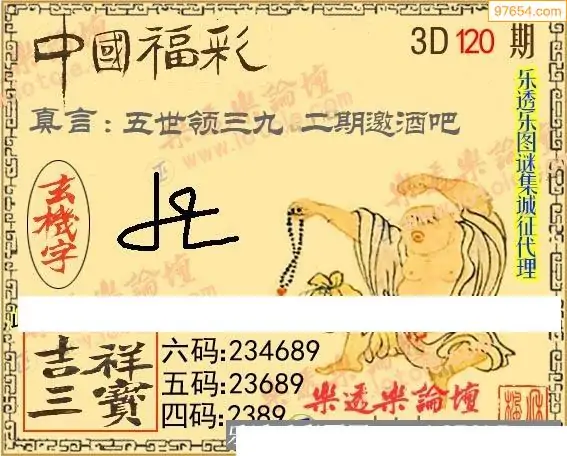 97654.com
中國福彩
3D 120 期
真言：五世领三九 二期邀酒吧
乐透乐图谜集诚征代理
玄機字
吉祥三寶
六码:234689
五码:23689
四码:2389
樂透樂論壇